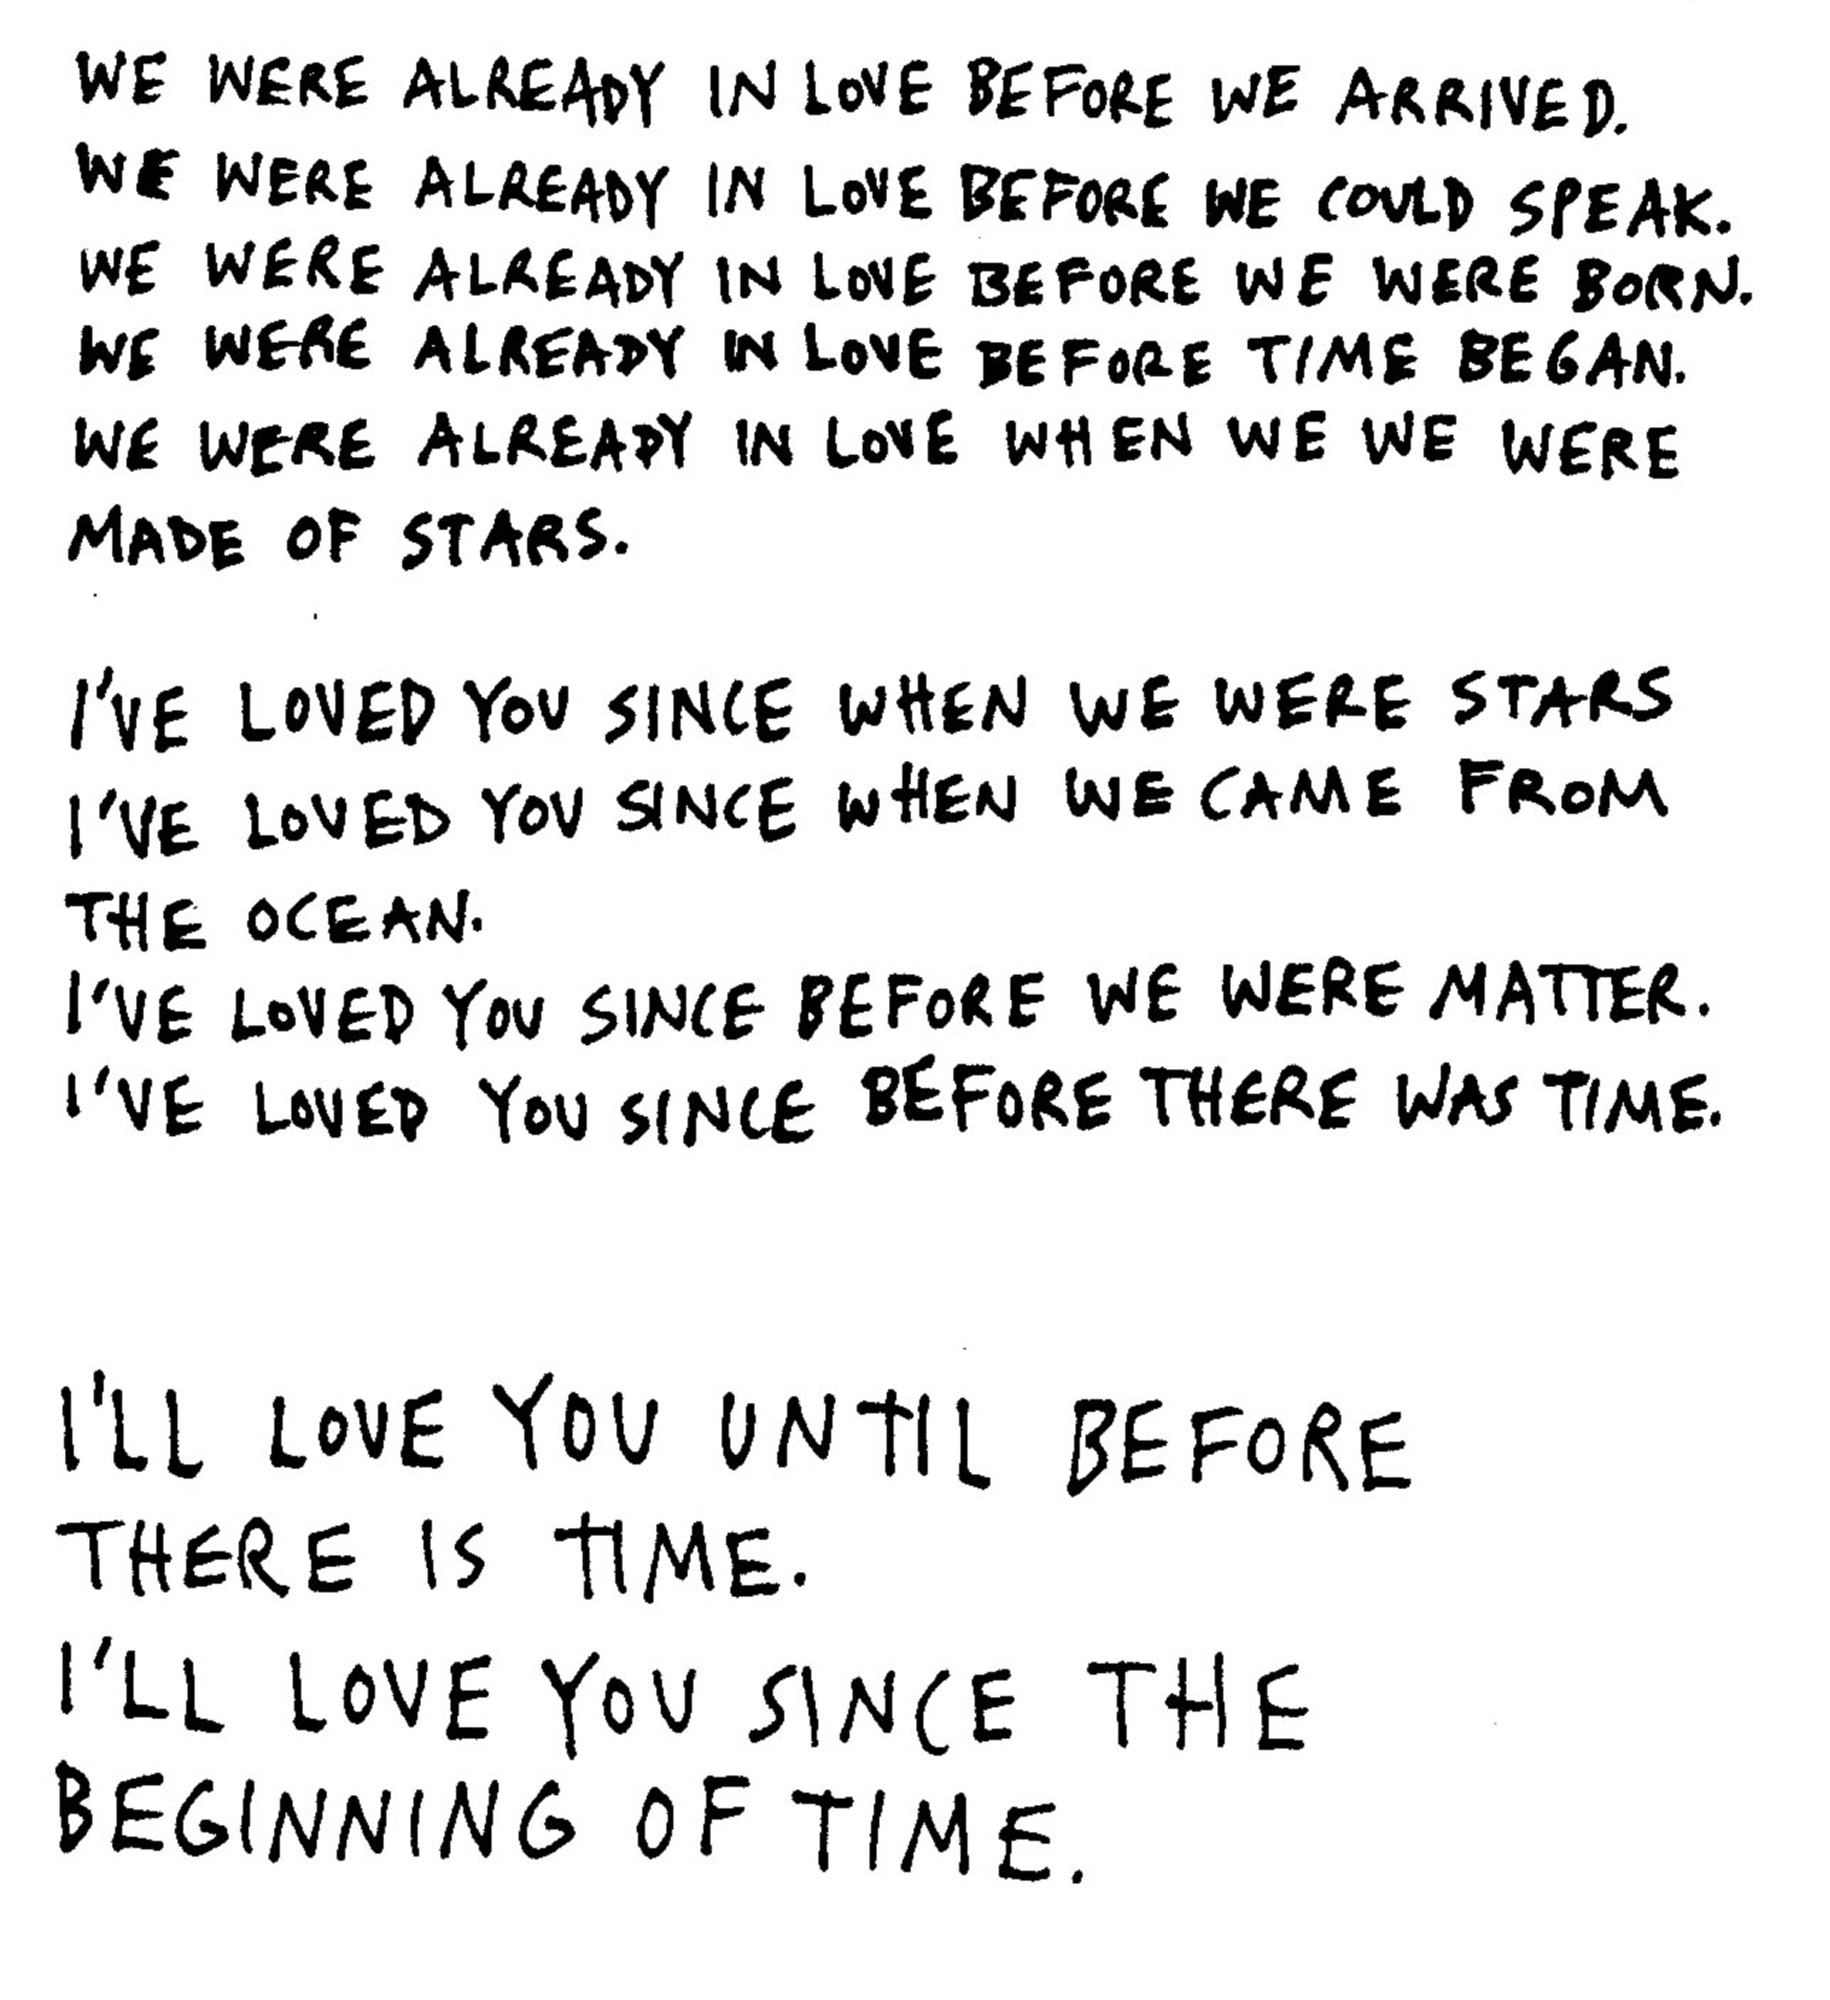 WE WERE ALREADY IN LOVE BEFORE WE ARRIVED.
WE WERE ALREADY IN LOVE BEFORE WE COULD SPEAK.
WE WERE ALREADY IN LOVE BEFORE WE WERE BORN.
WE WERE ALREADY IN LOVE BEFORE TIME BEGAN.
WE WERE ALREADY IN LOVE WHEN WE WE WERE
MADE OF STARS.
I'VE LOVED YOU SINCE WHEN WE WERE STARS
I'VE LOVED YOU SINCE WHEN WE CAME FROM
THE OCEAN.
I'VE LOVED YOU SINCE BEFORE WE WERE MATTER.
I'VE LOVED YOU SINCE BEFORE THERE WAS TIME.
I'LL LOVE YOU UNTIL BEFORE
THERE IS TIME.
I'LL LOVE YOU SINCE THE
BEGINNING OF TIME.